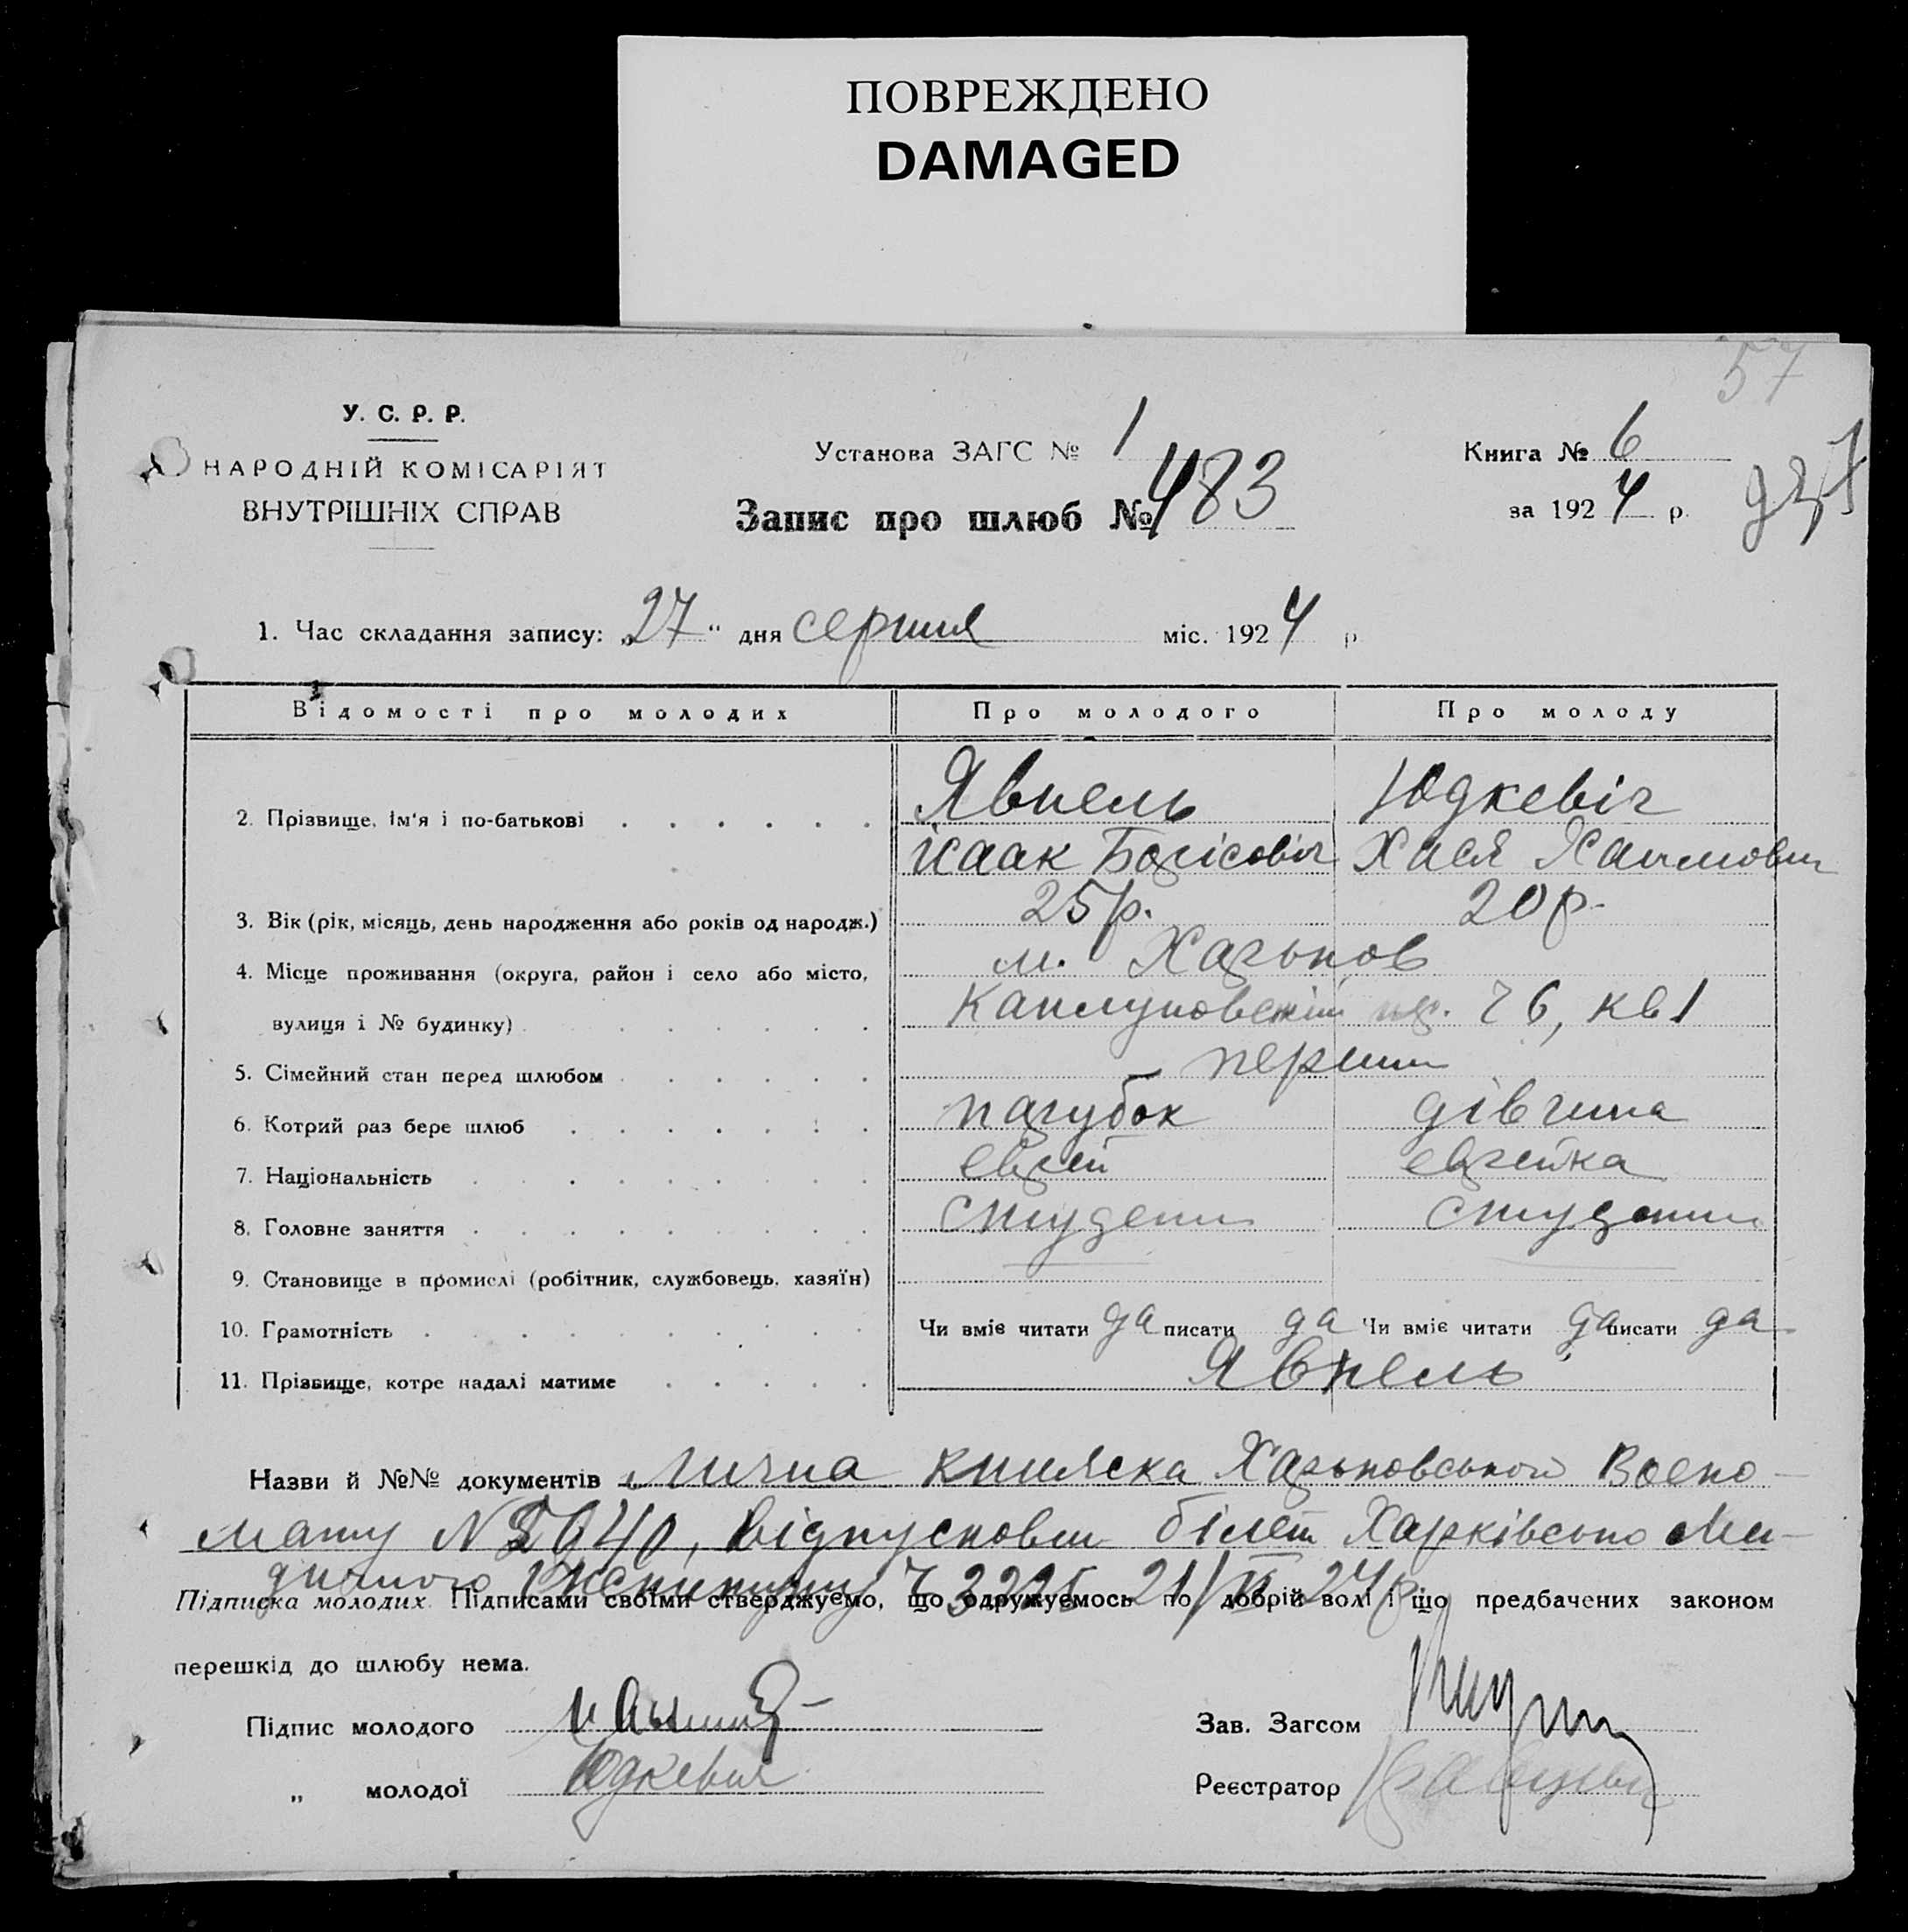 ПОВРЕЖДЕНО
DAMAGED
57
У. С. Р. Р.
НАРОДНІЙ КОМІСАРІЯТ
ВНУТРІШНІХ СПРАВ
Установа ЗАГС № 1
Запис про шлюб № 483
Книга № 6
за 1924 р.
1. Час складання запису: „27“ дня серпня міс. 1924 р
Відомості про молодих Про молодого Про молоду
Явнель Юдкевіч
2. Прізвище, ім'я і по-батькові
Ісаак Борісовіч Хася Хаимовн
3. Вік (рік, місяць, день народження або років од народж.) 25 р. 20 р.
4. Місце проживання (округа, район і село або місто, м. Харьков
вулиця і № будинку) Каплуновский 26, кв 1
5. Сімейний стан перед шлюбом перший
6. Котрий раз бере шлюб парубок дівчина
7. Національність еврей еврейка
8. Головне заняття студент студент
9. Становище в промислі (робітник, службовець, хазяїн)
10. Грамотність Чи вміє читати да писати да Чи вміє читати да писати да
11. Прізвище, котре надалі матиме Явнель
Назви й №№ документів Лична книжка Харьковського Воено-
мату N 5040, відпусковий білет Харківсько Ме-
дичного Інституту 3225 21/VI 24 р
Підписка молодих. Підписами своїми стверджуємо, що одружуємось по добрій волі і що предбачених законом
перешкід до шлюбу нема.
Підпис молодого
Зав. Загсом
„ молодої Юдкевич
Реєстратор